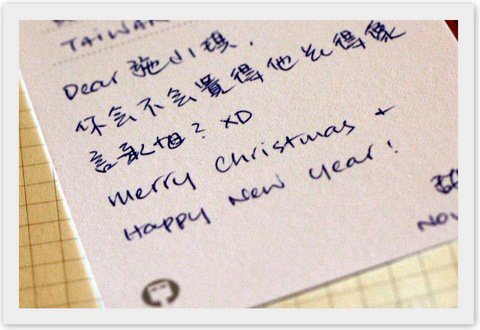 TAIWAN
Dear 施小琪,
你会不会覺得他长得像
言承旭? XD
merry christmas +
Happy New Year!
Nov